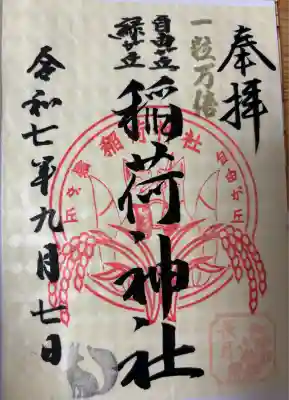 奉拝
一粒万倍
自由が丘
緑が丘
稲荷神社
令和七年九月七日
稲荷神社
自由が丘
緑が丘